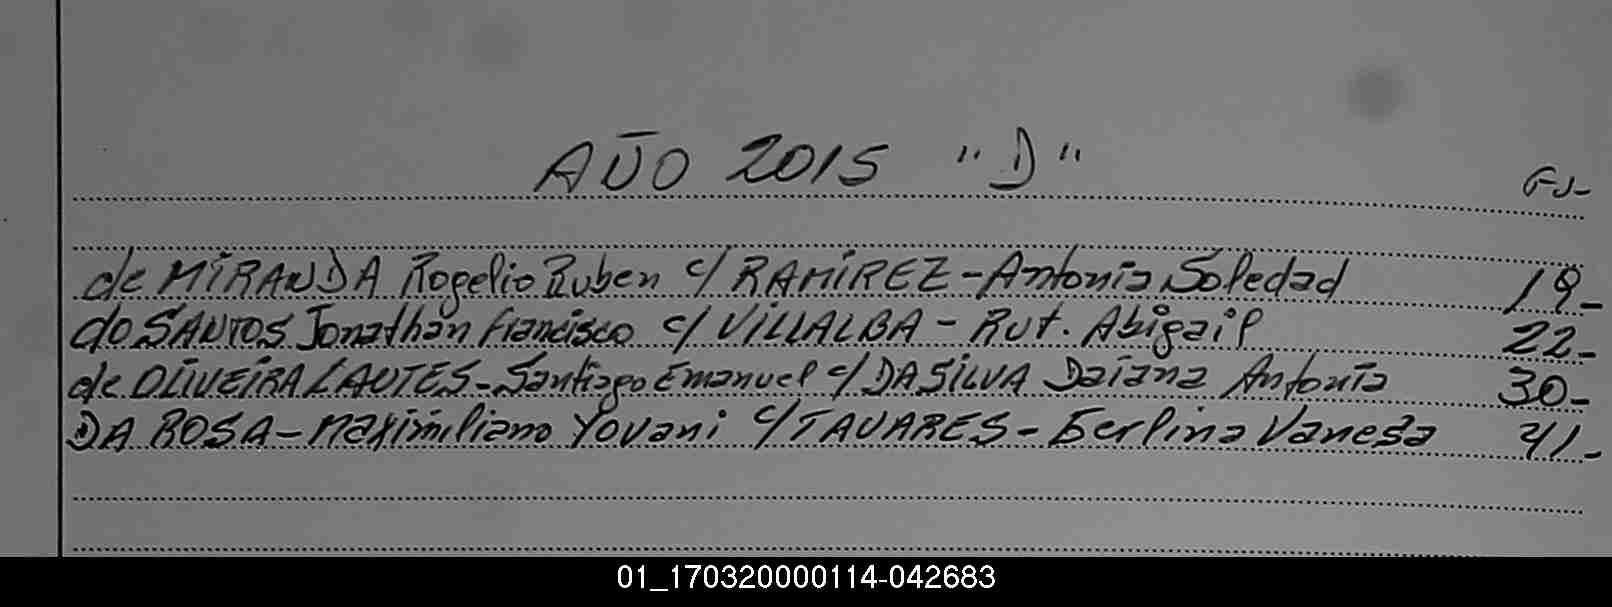 AÑO 2015 "D"
Fs-
de MIRANDA Rogelio Ruben c/ RAMIREZ - Antonia Soledad 19-
do SANTOS Jonathan Francisco c/ VILLALBA - Rut. Abigail 22-
de OLIVEIRA LAUTES - Santiago Emanuel c/ DA SILVA Daiana Antonia 30-
DA ROSA - Maximiliano Yovani c/ TAVARES - Berlina Vanesa 41-
01_170320000114-042683